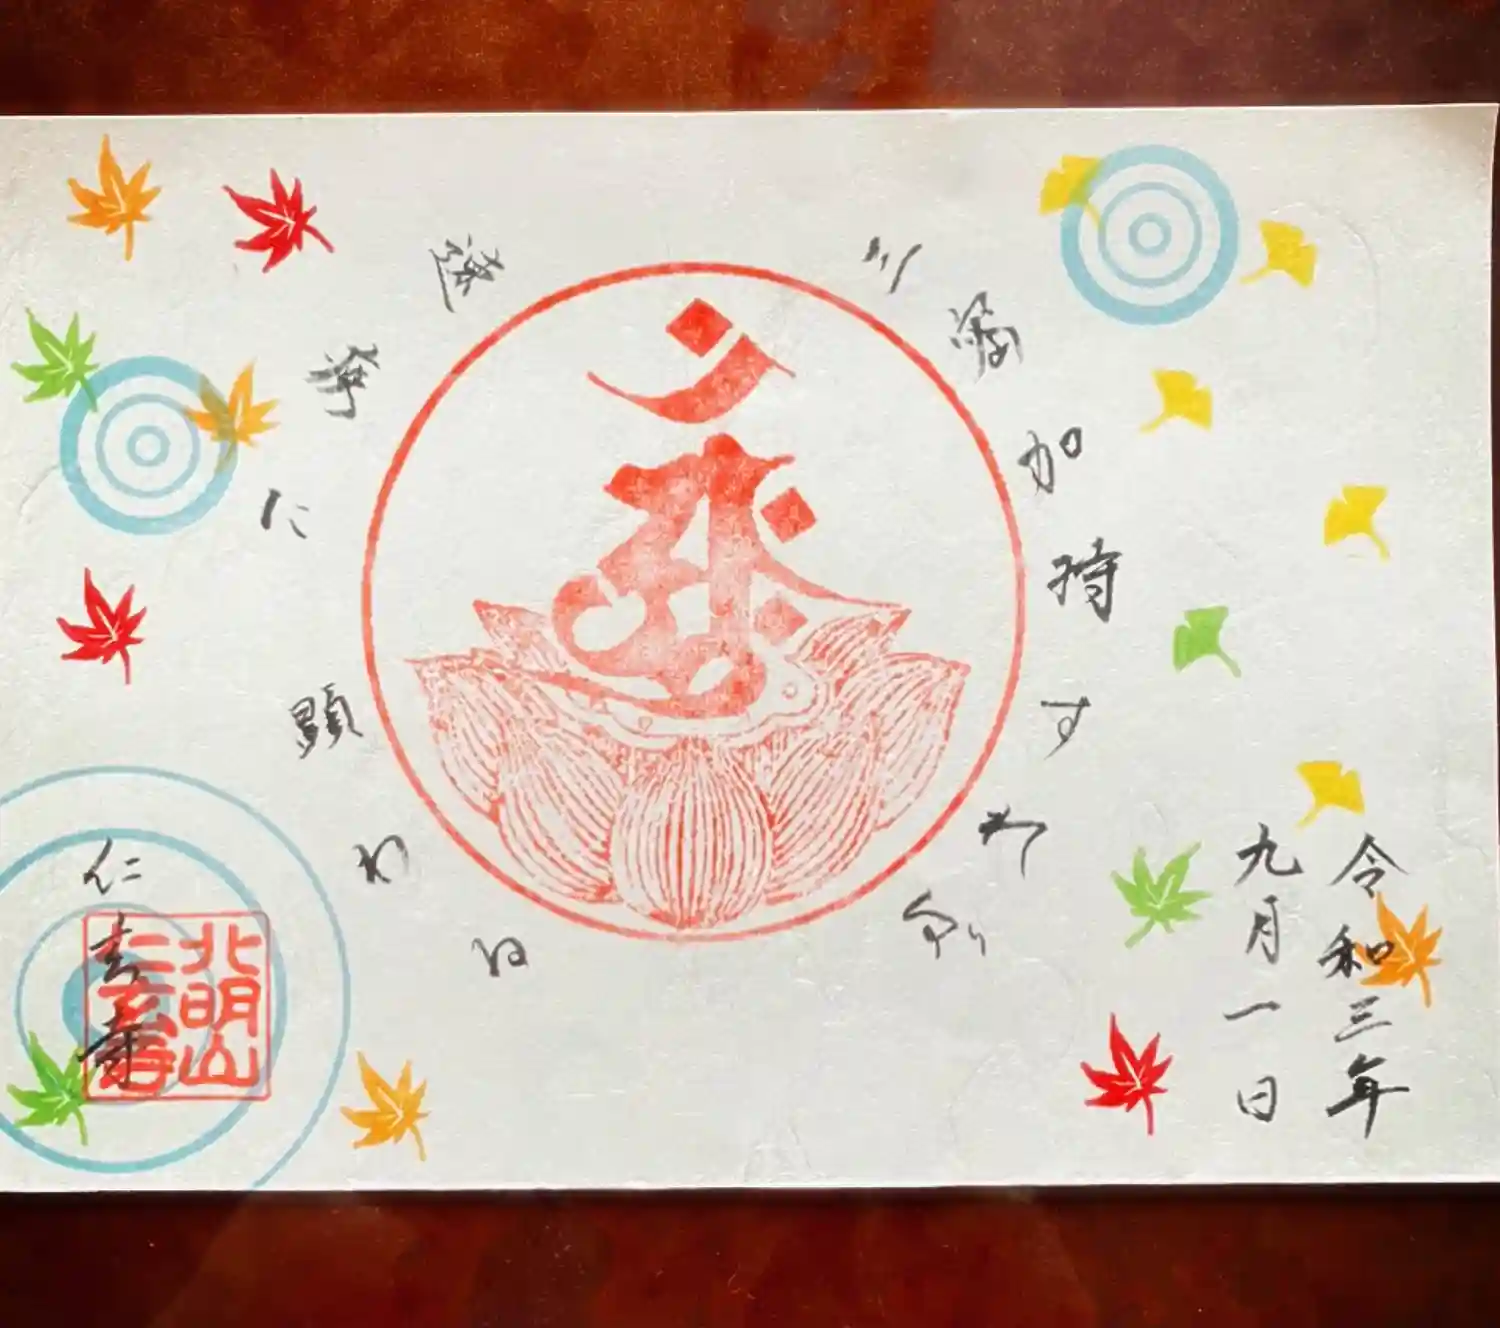 令和三年
九月一日
三密加持すれば
速疾に顕わる
仁玄寺
北明山
仁玄寺